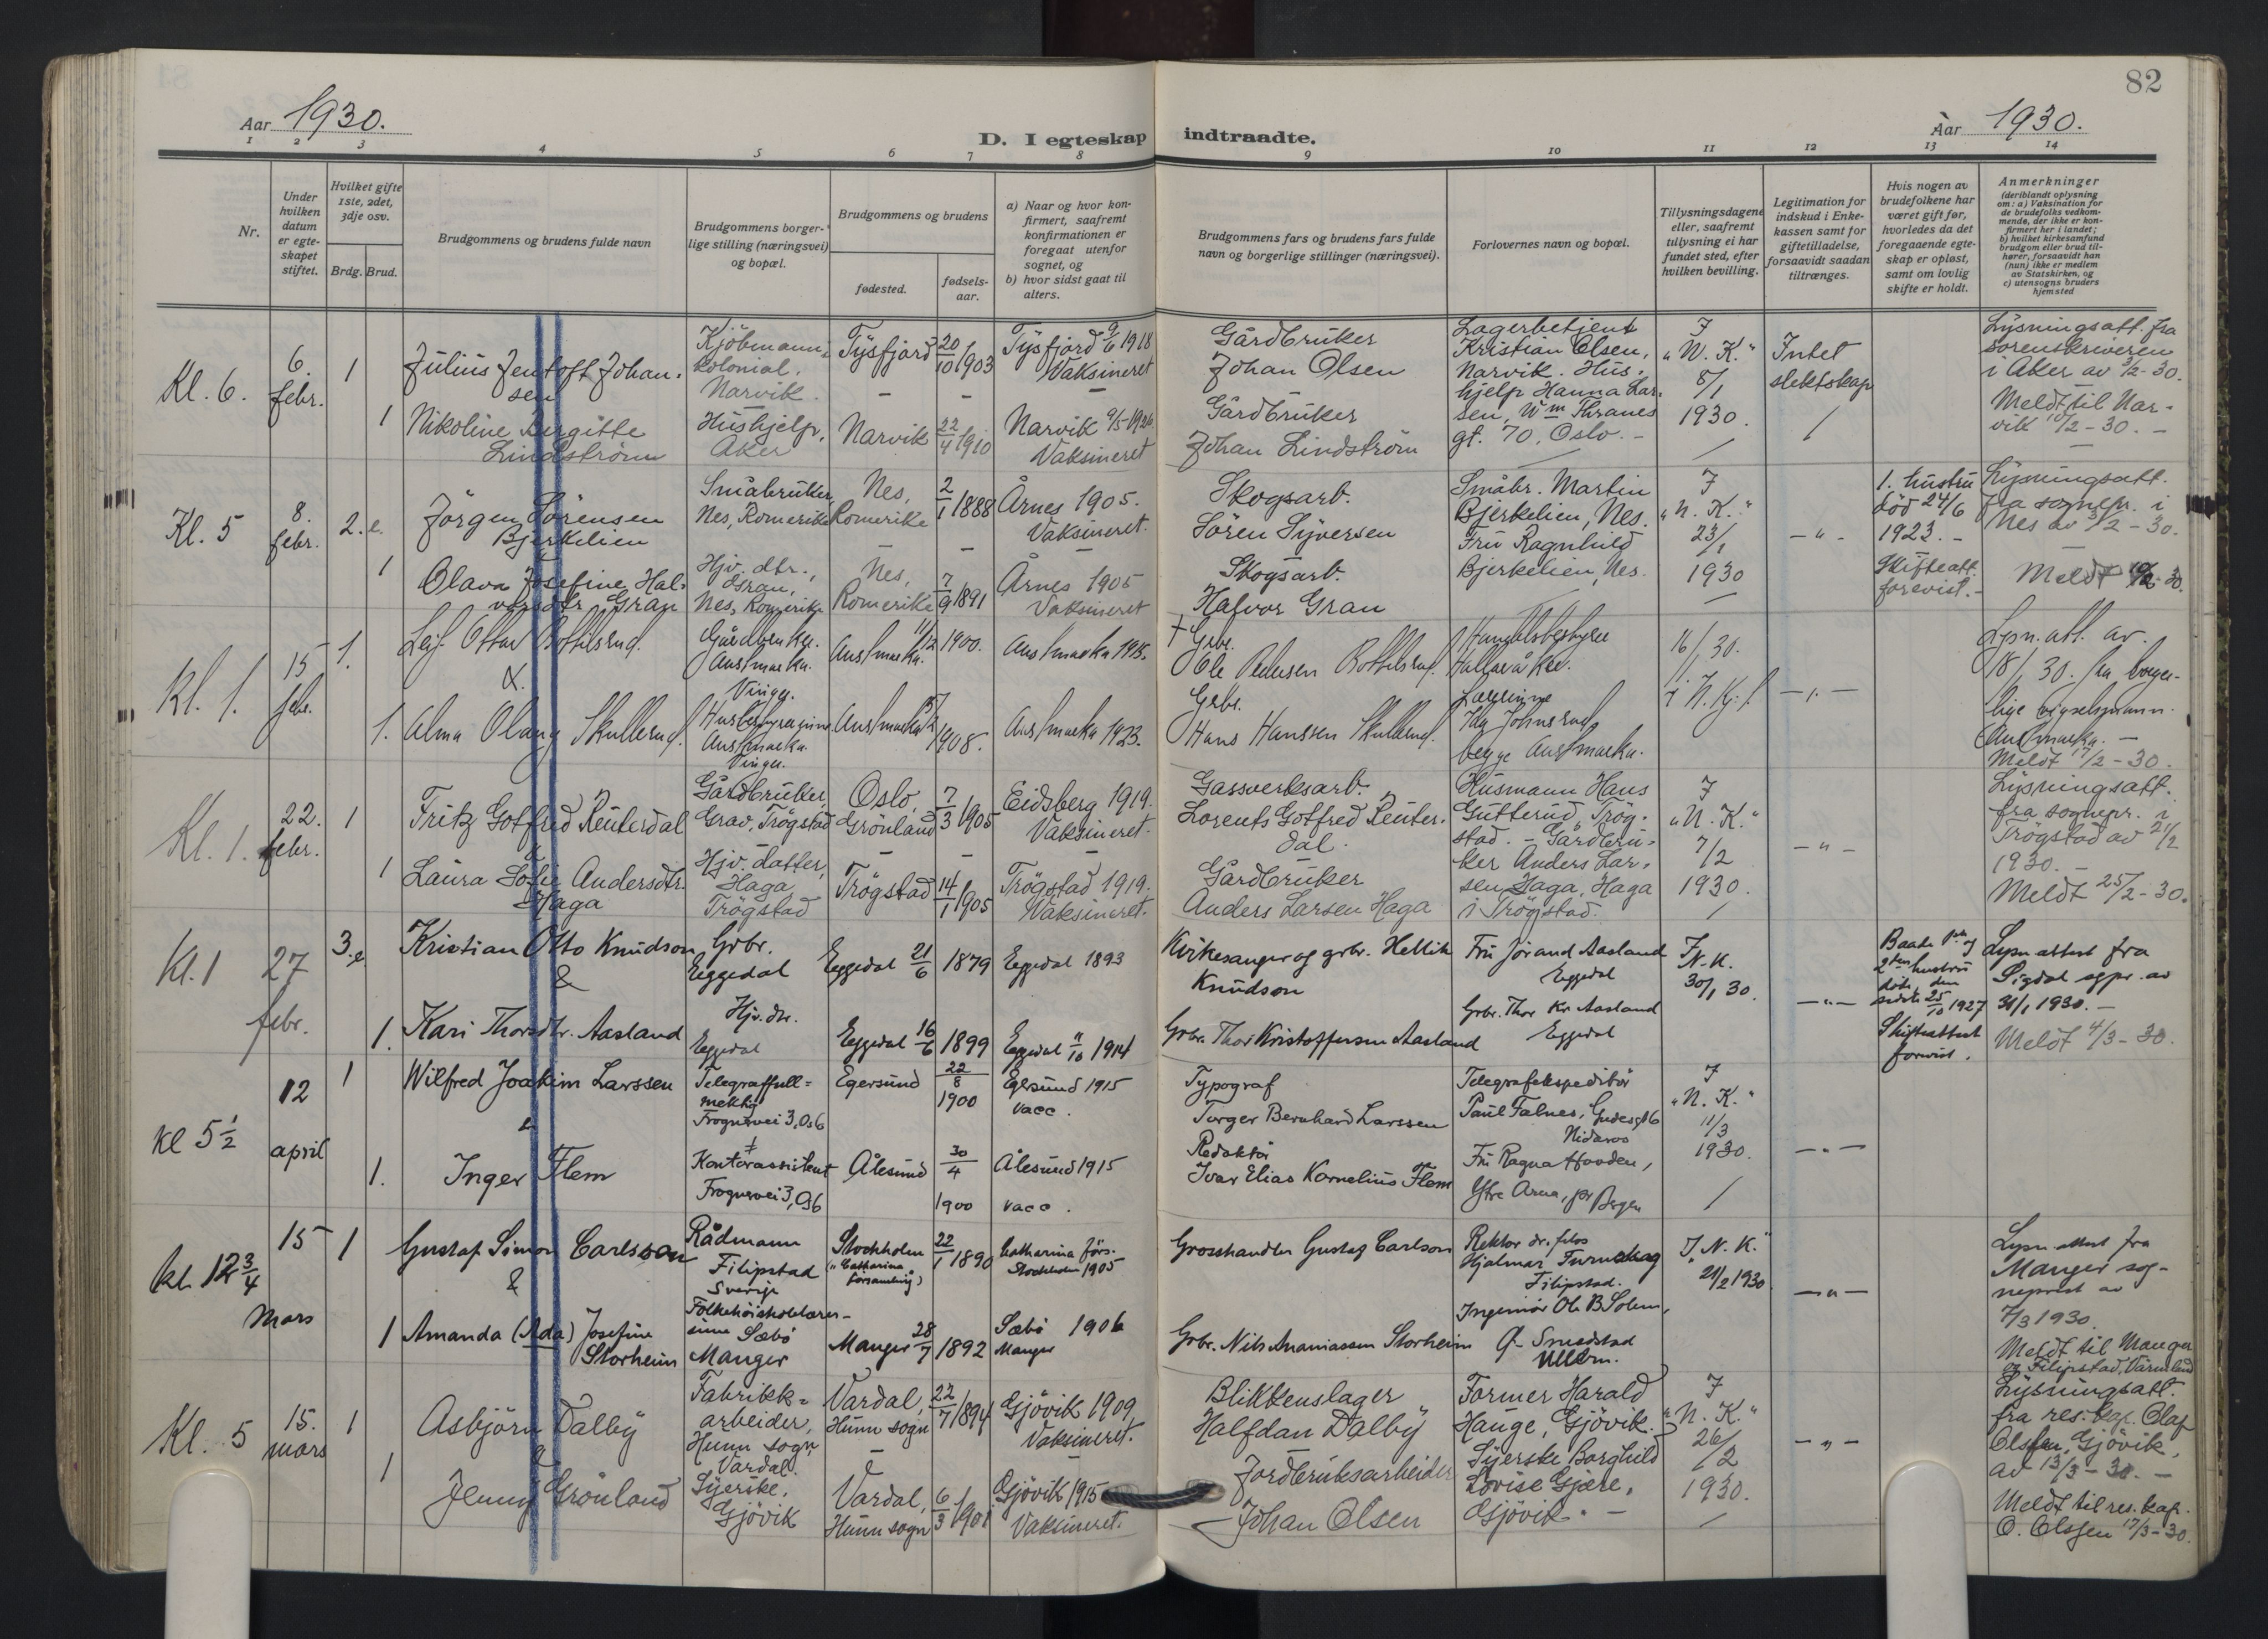 82
Aar 1930.
D. I egteskap indtraadte.
Aar 1930.
1 2 3 4 5 6 7 8 9 10 11 12 13 14
Nr.
Under hvilken datum er egteskapet stiftet.
Hvilket gifte 1ste, 2det, 3dje osv.
Brdg. Brud.
Brudgommens og brudens fulde navn
Brudgommens borgerlige stilling (næringsvei) og bopæl.
Brudgommens og brudens
fødested.
fødselsaar.
a) Naar og hvor konfirmert, saafremt konfirmationen er foregaat utenfor sognet, og
b) hvor sidst gaat til alters.
Brudgommens fars og brudens fars fulde navn og borgerlige stillinger (næringsvei).
Forlovernes navn og bopæl.
Tillysningsdagene eller, saafremt tillysning ei har fundet sted, efter hvilken bevilling.
Legitimation for indskud i Enkekassen samt for giftetilladelse, forsaavidt saadan tiltrænges.
Hvis nogen av brudefolkene har været gift før, hvorledes da det foregaaende egteskap er opløst, samt om lovlig skifte er holdt.
Anmerkninger
(deriblandt oplysning om: a) Vaksination for de brudefolks vedkommende, der ikke er konfirmert her i landet;
b) hvilket kirkesamfund brudgom eller brud tilhører, forsaavidt han (hun) ikke er medlem av Statskirken, og
c) utensogns bruders hjemsted
Kl. 6.
6. febr.
1
Julius Jentoft Johansen
Kjöbmann, kolonial, Narvik.
Tysfjord
20/10 1903
Tysfjord 9/6 1918
Vaksineret
Gårdbruker
Johan Olsen
Lagerbetjent
Kristian Olsen,
Narvik. Hus-
hjelp Hanna Lar-
sen, Wm Thranes
gt. 70, Oslo. -
I
"N. K."
8/1
1930.
Intet
slektskap
Lysningsatt. fra
sorenskriveren
i Aker av 3/2-30.
Meldt til Nar-
vik 10/2-30. -
1
Nikoline Birgitte
Lindström
Hushjelp,
Aker
Narvik
22/4 1910
Narvik
Vaksineret
Gårdbruker
Johan Lindström
Kl. 5
8. febr.
2. e.
Jörgen Sörensen
Bjerkelien
&
Småbruker,
Nes, Romerike
Nes,
Romerike
2/1 1888
Årnes 1905.
Vaksineret.
Skogsarb.
Sören Syversen
Småbr. Martin
Bjerkelien, Nes.
Fru Ragnhild
Bjerkelien, Nes.
I
"N. K."
23/1
1930
- " -
1. hustru
död 24/6
1923. -
Skifteatt.
forevist. -
Lysningsatt.
fra sognepr. i
Nes av
Meldt
1
Olava Josefine Hal-
vorsdtr Gran
Hjv. dtr.,
Gran,
Nes, Romerike
Nes,
Romerike
7/9 1891
Årnes 1905
Vaksineret
Skogsarb.
Halvor Gran
Kl. 1.
15 febr.
1.
Leif Ottar
&
Gårdbruker.
Austmarka.
Vinger.
Austmarka.
11/12 1900.
Austmarka 1915.
† Grbr.
Ole Pedersen
Handelsbestyrer
16/1 30.
i N. Kj.
- " -
Lysn. att. av
18/1 30. fra borger-
lige vigselsmann.
Austmarka. -
Meldt 17/2-30.
1.
Alma Olaug Skullerud.
Husbestyrerinne
Austmarka.
Vinger.
Austmarka
1908.
Austmarka 1923.
Grbr.
Hans Hanssen Skullerud.
Lærerinne
Johnsrud,
begge Austmarka.
Kl. 1.
22. febr.
1
Fritz Gotfred Reuterdal
&
Gårdbruker,
Grav, Trögstad
Oslo,
Grönland
7/3 1905
Eidsberg 1919.
Vaksineret.
Gassverksarb.
Lorents Gotfred Reuter-
dal.
Husmann Hans
Gutterud, Trög-
stad. - Gårdbru-
ker Anders Lar-
sen Haga, Haga
i Trögstad.
I
"N. K."
7/2
1930.
- " -
Lysningsatt.
fra sognepr. i
Trögstad av 21/2
1930. -
Meldt 25/2-30.
1
Laura Sofie Andersdtr.
Haga
Hjv. datter,
Haga,
Trögstad
Trögstad
14/1 1905
Trögstad 1919.
Vaksineret.
Gårdbruker
Anders Larsen Haga
Kl. 1
27 febr.
3. e.
Kristian Otto Knudson
&
Grbr.
Eggedal
Eggedal
21/6 1879
Eggedal 1893
Kirkesanger og grbr. Hellik
Knudson
Fru Jörand Aasland
Eggedal
Grbr. Thor Kr Aasland
Eggedal
I.
N. K.
30/1 30.
- " -
Baade 1ste og
2den hustru
döde, den
sidste 25/10 1927
Skifteattest
forevist.
Lysn attest fra
Sigdal sgpr. av
31/1 1930. -
Meldt 4/3-30.
1.
Kari Thorsdtr. Aasland
Hjv. dtr.
Eggedal
Eggedal
16/6 1899
Eggedal 11/10 1914
Grbr. Thor Kristoffersen Aasland
kl 5 1/2
12 april
1
Wilfred Joakim Larssen
&
Telegraffull-
mektig
Frognervei 3, Os6
Egersund
22/8 1900
Egersund 1915
vacc.
Typograf
Torger Bernhard Larssen
Telegrafekspeditör
Paul Falnes,
Nidaros
Fru Ragna Hovden,
Ytre Arna, pr Bergen
I
"N. K."
11/3
1930.
- " -
1.
Inger Flem
Kontorassistent
Frognervei 3, Os6
Ålesund
30/4 1900
Ålesund 1915
vacc.
Redaktör
Ivar Elias Kornelius Flem
kl. 12 3/4
15 Mars
1
Gustaf Simon Carlsson
&
Rådmann
Filipstad
Sverige
Stockholm
(Catharina församling)
22/1 1890
Catharina förs.
Stockholm 1905
Grosshandler Gustaf Carlson
Rektor dr. filos
Hjalmar
Filipstad.
Ingeniör Ole B Solem,
Smedstad
Ullern.
I. "N. K."
21/2 1930
- " -
Lysn attest fra
Manger sog-
neprest av
7/3 1930
Meldt til Manger
og Filipstad, Värmland
1
Amanda (Ada) Josefine
Storheim
Folkehöiskolelærer-
inne Sæbö
Manger
Manger
28/7 1892
Sæbö 1906
Manger
Grbr. Nils Ananiassen Storheim
Kl. 5
15. mars
1
Asbjörn Dalby
&
Fabrikk-
arbeider,
Hunn sogn,
Vardal.
Vardal,
Hunn sogn
22/7 1894
Gjövik 1909
Vaksineret.
Blikkenslager
Halfdan Dalby
Former Harald
Hauge, Gjövik.
Syerske Borghild
Lovise Gjære,
Gjövik. -
I
"N. K."
26/2
1930.
- " -
Lysningsatt.
fra res. kap. Olaf
Olssen, Gjövik,
av 13/3-30. -
Meldt til res. kap.
O. Olssen 17/3-30.
1
Jenny Grönland
Syerske,
Gjövik
Vardal,
Hunn sogn
6/3 1901
Gjövik 1915
Vaksineret.
Jordbruksarbeider
Johan Olsen